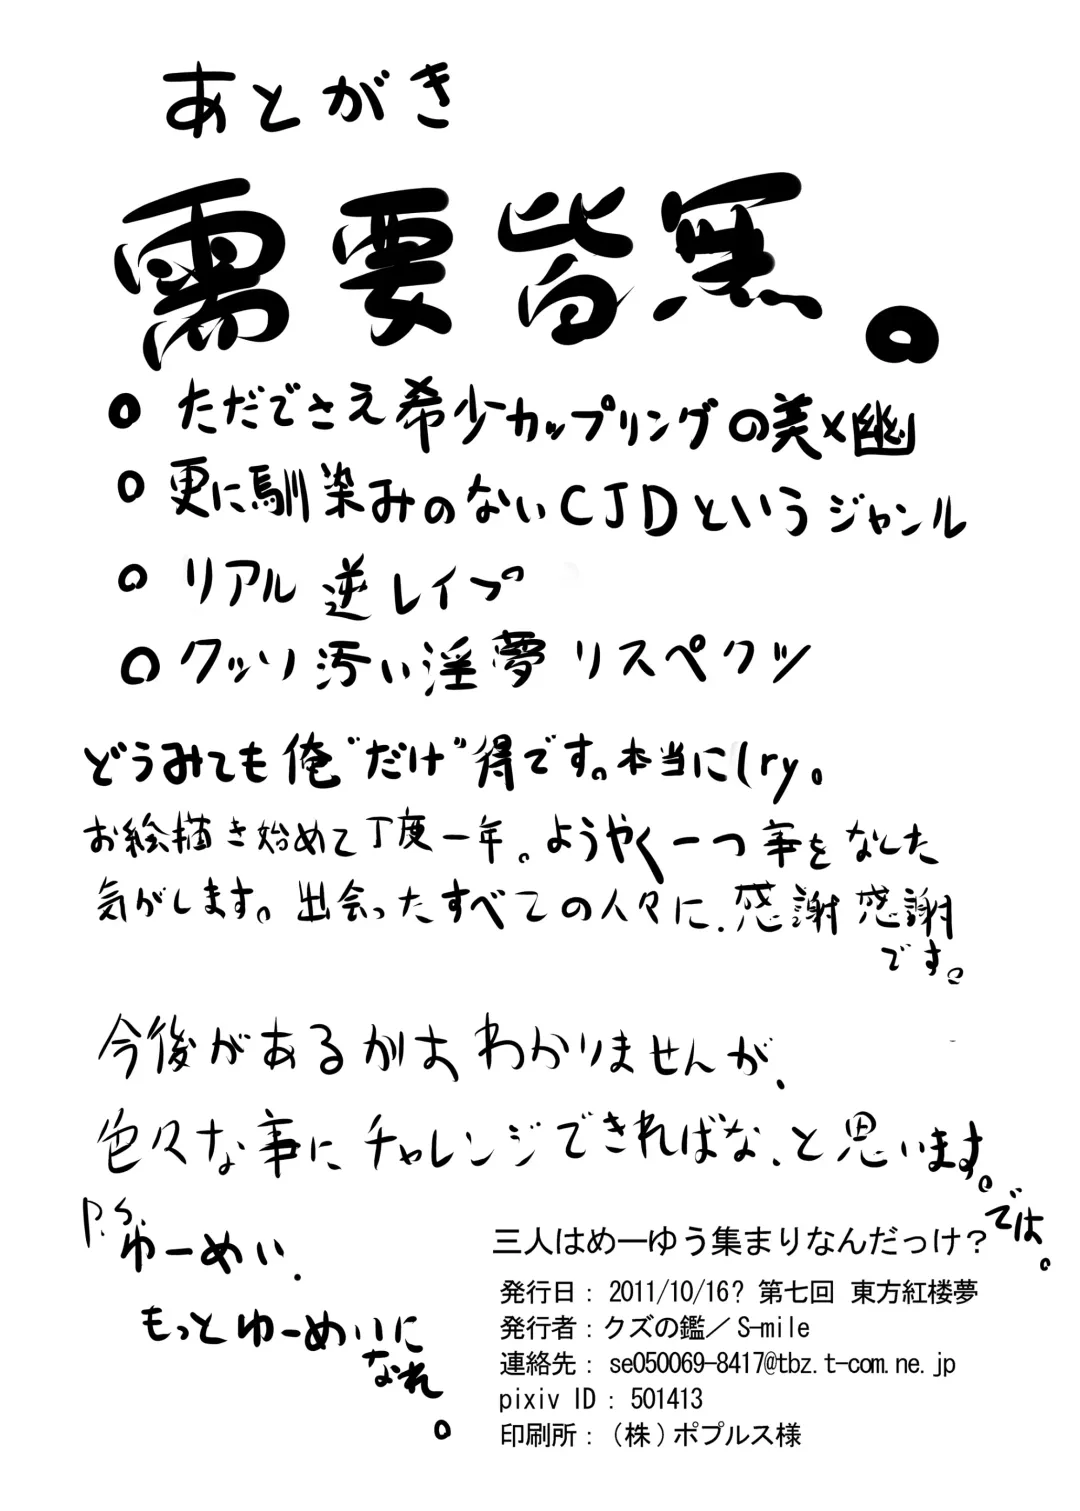 あとがき
需要皆無。
○ ただでさえ希少カップリングの美×幽
○ 更に馴染みのないCJDというジャンル
○ リアル逆レイプ
○ クッソ汚い淫夢リスペクツ
どうみても俺"だけ"得です。本当に(ry。
お絵描き始めて丁度一年。ようやく一つ事をなした
気がします。出会ったすべての人々に、感謝感謝
です。
今後があるかは、わかりませんが、
色々な事にチャレンジできればな、と思います。
では。
P.S.
ゆーめい、
もっとゆーめいに
なれ。
三人はめーゆう集まりなんだっけ？
発行日： 2011/10/16? 第七回 東方紅楼夢
発行者：クズの鑑／S-mile
連絡先： se050069-8417@tbz.t-com.ne.jp
pixiv ID : 501413
印刷所：（株）ポプルス様